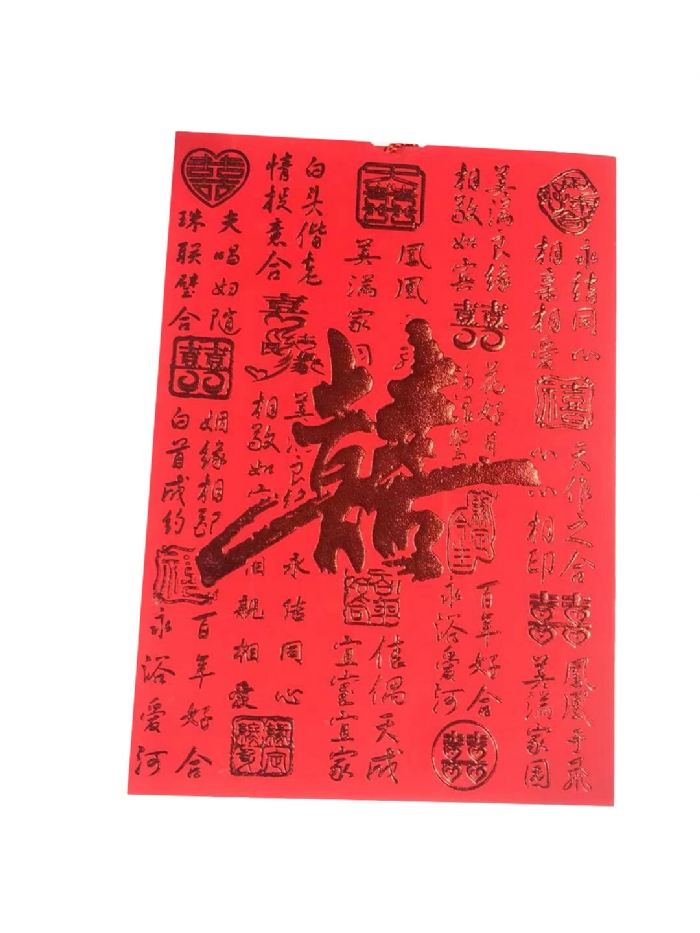 永结同心
相亲相爱
天作之合
心心相印
鳳凰于飛
美满家园
美满良缘
相敬如宾
囍
花好月
百年好合
永浴爱河
天
囍
鳳凰
美满家
囍
百年好合
佳偶天成
宜室宜家
白头偕老
情投意合
喜
缘
美满良缘
相敬如宾
永结同心
相親相愛
囍
夫唱妇随
珠联璧合
囍
姻缘相配
白首成约
禧
百年好合
永浴爱河